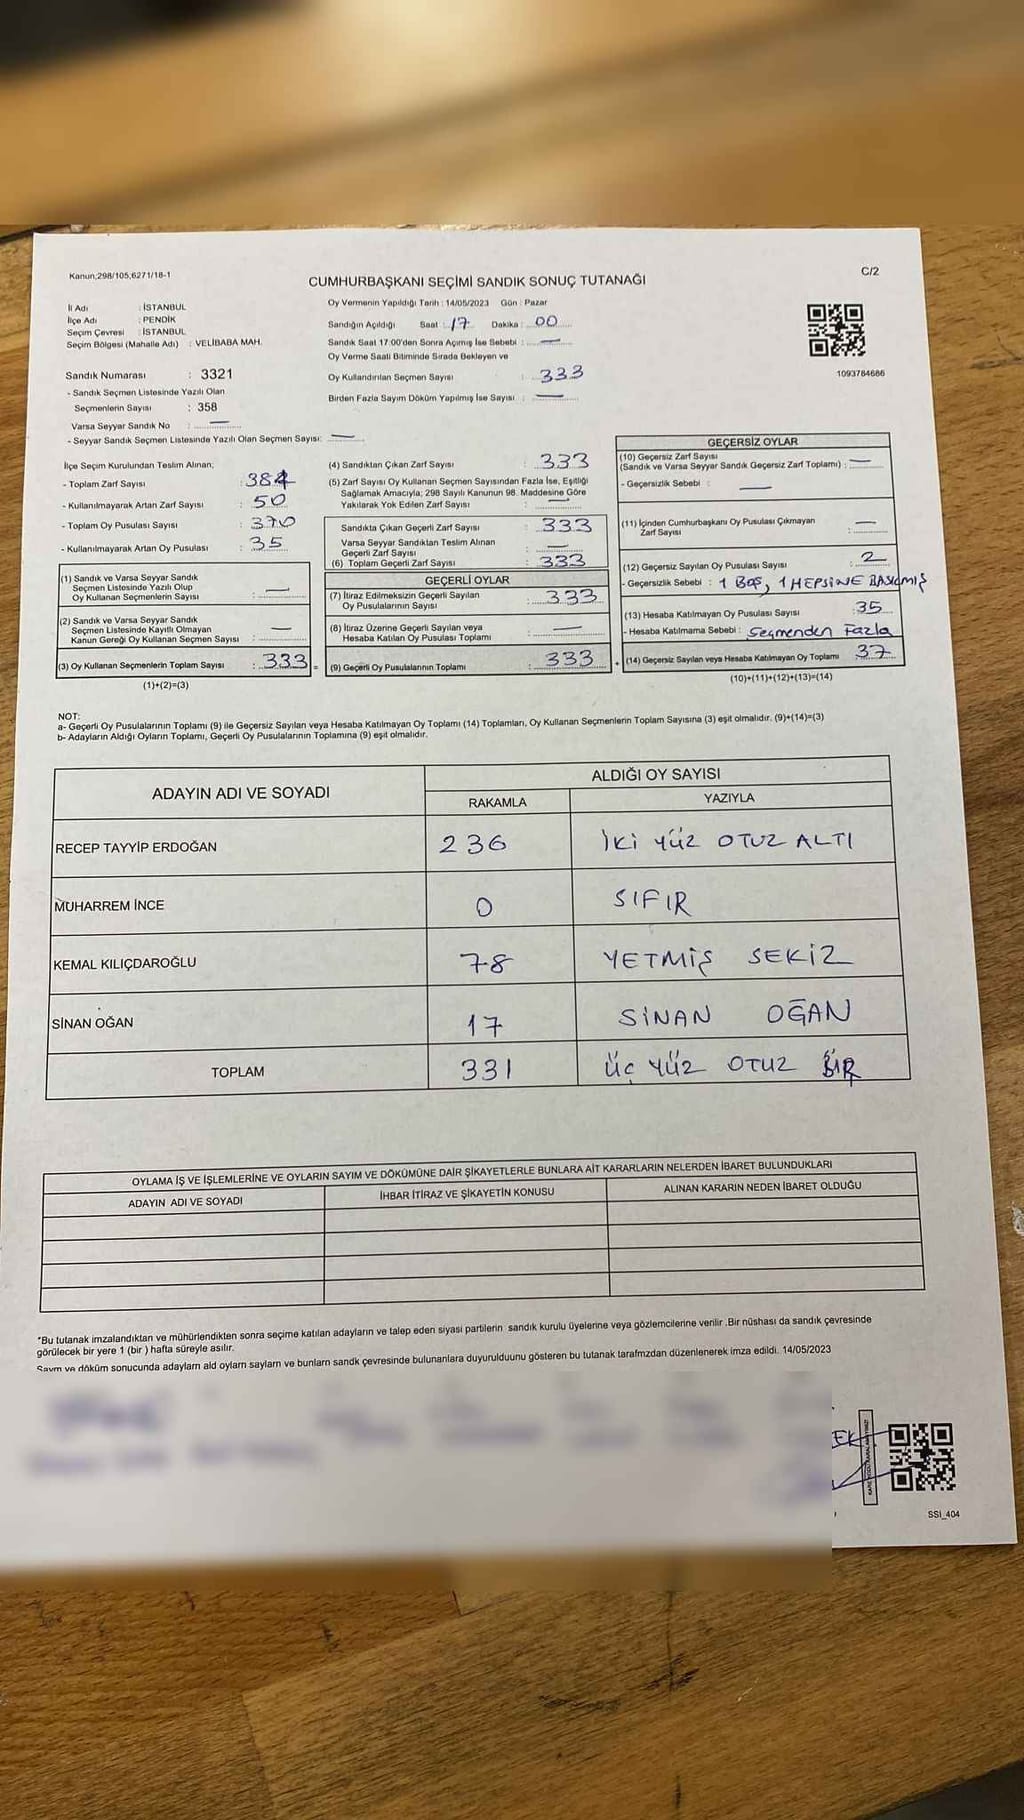 Kanun;298/105,6271/18-1
C/2
CUMHURBAŞKANI SEÇİMİ SANDIK SONUÇ TUTANAĞI
İl Adı : İSTANBUL
İlçe Adı : PENDİK
Seçim Çevresi : İSTANBUL
Seçim Bölgesi (Mahalle Adı) : VELİBABA MAH.
Sandık Numarası : 3321
- Sandık Seçmen Listesinde Yazılı Olan
Seçmenlerin Sayısı : 358
Varsa Seyyar Sandık No : —
- Seyyar Sandık Seçmen Listesinde Yazılı Olan Seçmen Sayısı: —
Oy Vermenin Yapıldığı Tarih : 14/05/2023 Gün : Pazar
Sandığın Açıldığı Saat : 17 Dakika : 00
Sandık Saat 17:00'den Sonra Açmış İse Sebebi : —
Oy Verme Saati Bitiminde Sırada Bekleyen ve
Oy Kullandırılan Seçmen Sayısı : 333
Birden Fazla Sayım Döküm Yapılmış İse Sayısı : —
1093784686
İlçe Seçim Kurulundan Teslim Alınan;
- Toplam Zarf Sayısı : 384
- Kullanılmayarak Artan Zarf Sayısı : 50
- Toplam Oy Pusulası Sayısı : 370
- Kullanılmayarak Artan Oy Pusulası : 35
(1) Sandık ve Varsa Seyyar Sandık
Seçmen Listesinde Yazılı Olup
Oy Kullanan Seçmenlerin Sayısı : —
(2) Sandık ve Varsa Seyyar Sandık
Seçmen Listesinde Kayıtlı Olmayan
Kanun Gereği Oy Kullanan Seçmen Sayısı : —
(3) Oy Kullanan Seçmenlerin Toplam Sayısı : 333 =
(1)+(2)=(3)
(4) Sandıktan Çıkan Zarf Sayısı : 333
(5) Zarf Sayısı Oy Kullanan Seçmen Sayısından Fazla İse, Eşitliği
Sağlamak Amacıyla; 298 Sayılı Kanunun 98. Maddesine Göre
Yakılarak Yok Edilen Zarf Sayısı : —
Sandıkta Çıkan Geçerli Zarf Sayısı : 333
Varsa Seyyar Sandıktan Teslim Alınan
Geçerli Zarf Sayısı : —
(6) Toplam Geçerli Zarf Sayısı : 333
GEÇERLİ OYLAR
(7) İtiraz Edilmeksizin Geçerli Sayılan
Oy Pusulalarının Sayısı : 333
(8) İtiraz Üzerine Geçerli Sayılan veya
Hesaba Katılan Oy Pusulası Toplamı : —
(9) Geçerli Oy Pusulalarının Toplamı : 333 +
GEÇERSİZ OYLAR
(10) Geçersiz Zarf Sayısı
(Sandık ve Varsa Seyyar Sandık Geçersiz Zarf Toplamı) : —
- Geçersizlik Sebebi : —
(11) İçinden Cumhurbaşkanı Oy Pusulası Çıkmayan
Zarf Sayısı : —
(12) Geçersiz Sayılan Oy Pusulası Sayısı : 2
- Geçersizlik Sebebi : 1 BOŞ, 1 HEPSİNE BASILMIŞ
(13) Hesaba Katılmayan Oy Pusulası Sayısı : 35
- Hesaba Katılmama Sebebi : Seçmenden Fazla
(14) Geçersiz Sayılan veya Hesaba Katılmayan Oy Toplamı 37
(10)+(11)+(12)+(13)=(14)
NOT:
a- Geçerli Oy Pusulalarının Toplamı (9) ile Geçersiz Sayılan veya Hesaba Katılmayan Oy Toplamı (14) Toplamları, Oy Kullanan Seçmenlerin Toplam Sayısına (3) eşit olmalıdır. (9)+(14)=(3)
b- Adayların Aldığı Oyların Toplamı, Geçerli Oy Pusulalarının Toplamına (9) eşit olmalıdır.
ADAYIN ADI VE SOYADI
ALDIĞI OY SAYISI
RAKAMLA YAZIYLA
RECEP TAYYİP ERDOĞAN 236 İKİ YÜZ OTUZ ALTI
MUHARREM İNCE 0 SIFIR
KEMAL KILIÇDAROĞLU 78 YETMİŞ SEKİZ
SİNAN OĞAN 17 SİNAN OĞAN
TOPLAM 331 ÜÇ YÜZ OTUZ BİR
OYLAMA İŞ VE İŞLEMLERİNE VE OYLARIN SAYIM VE DÖKÜMÜNE DAİR ŞİKAYETLERLE BUNLARA AİT KARARLARIN NELERDEN İBARET BULUNDUKLARI
ADAYIN ADI VE SOYADI İHBAR İTİRAZ VE ŞİKAYETİN KONUSU ALINAN KARARIN NEDEN İBARET OLDUĞU
*Bu tutanak imzalandıktan ve mühürlendikten sonra seçime katılan adayların ve talep eden siyasi partilerin sandık kurulu üyelerine veya gözlemcilerine verilir .Bir nüshası da sandık çevresinde
görülecek bir yere 1 (bir ) hafta süreyle asılır.
Sayım ve döküm sonucunda adayların ald oyların sayların ve bunların sandk çevresinde bulunanlara duyurulduunu gösteren bu tutanak tarafmzdan düzenlenerek imza edildi. 14/05/2023
EK
SSI_404